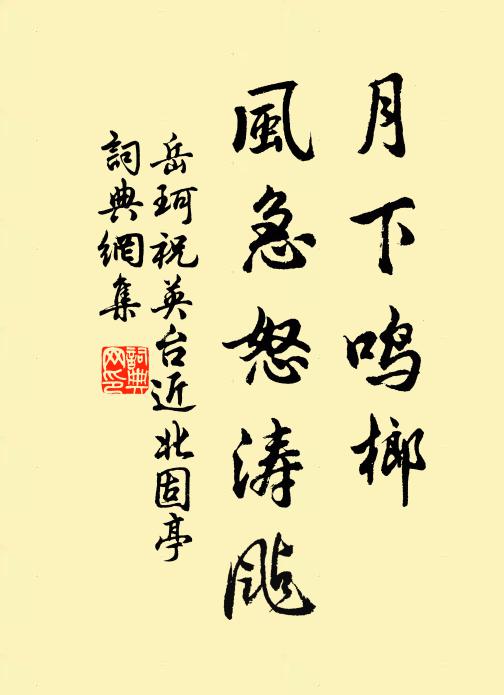 月下鳴榔
風急怒涛颭
岳珂祝英台近北固亭
詞典網集
詞典网印